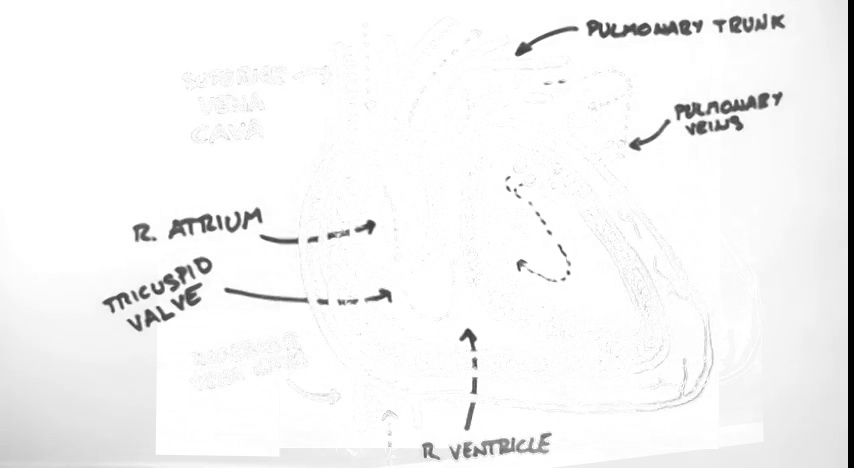 PULMONARY TRUNK
SUPERIOR
VENA
CAVA
PULMONARY
VEINS
R. ATRIUM
TRICUSPID
VALVE
R VENTRICLE